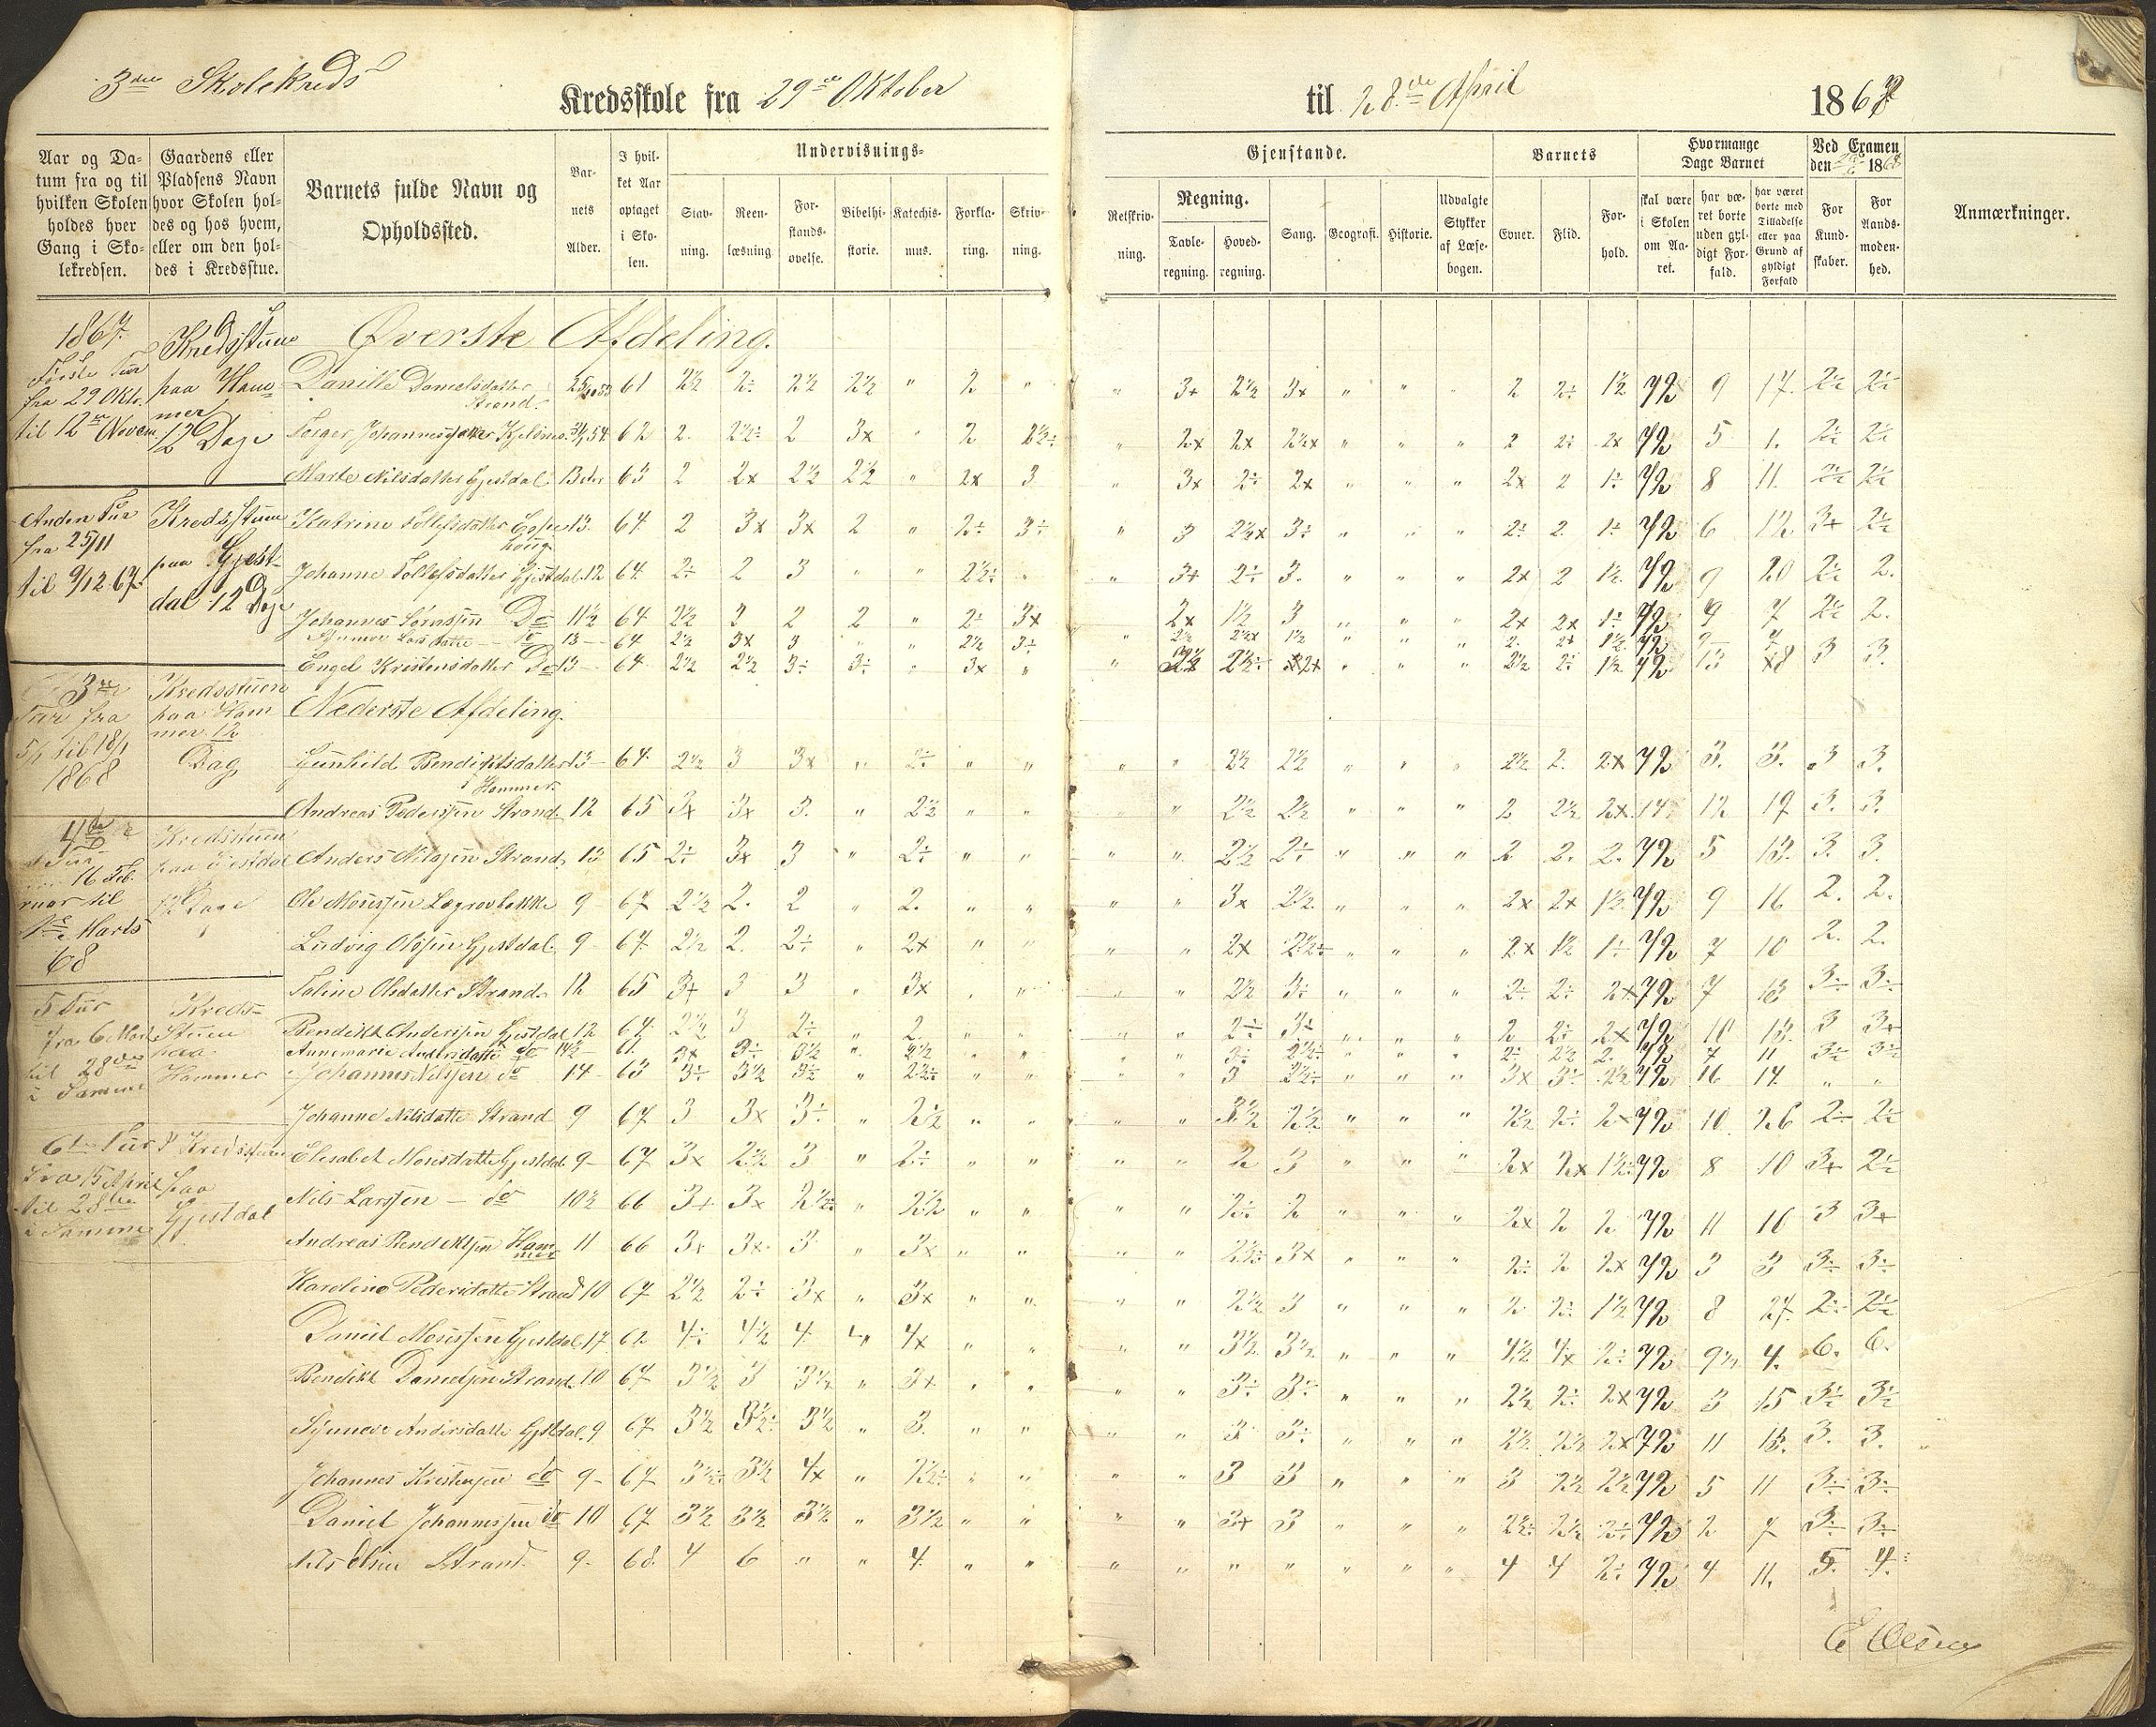 3die Skolekreds
Kredsskole fra 29de Oktober til 28de April 1868
Aar og Datum fra og til hvilken Skolen holdes hver Gang i Skolekredsen.
Gaardens eller Pladsens Navn hvor Skolen holdes og hos hvem, eller om den holdes i Kredsstue.
Barnets fulde Navn og Opholdssted.
Barnets Alder.
I hvilket Aar optaget i Skolen.
Undervisnings-
Stavning. Reenlæsning Forstandsøvelse. Bibelhistorie. Katechismus. Forklaring. Skrivning.
Gjenstande.
Retskrivning.
Regning.
Tavleregning. Hovedregning.
Sang. Geografi. Historie. Udvalgte Stykker af Læsebogen.
Barnets
Evner. Flid. Forhold.
Hvormange Dage Barnet
skal være i Skolen om Aaret.
har været borte uden gyldigt Forfald.
har været borte med Tilladelse eller paa Grund af gyldigt Forfald
Ved Examen den 1868
For Kundskaber. For Aandsmodenhed.
Anmærkninger.
1867.
Første Tur
fra 29 Okto.
til 12te Novem.
Kredsstuen
paa Hammer
12 Dage
Anden Tur
fra 25/11
til 9/12 67.
Kredsstuen
paa Gjestdal 12 Dage
3die
Tur fra
5/1 til 18/1
1868
Kredsstuen
paa Hammer 12
Dag
4de
Tur
16 Februar til
Marts
68
Kredsstuen
paa Gjestdal
12 Dage
5 Tur
fra 6 Mar
til 28de
i Samme
Kredsstuen
paa
Hammer
6te Tur
fra 15 April
til 28de
i Samme
Kredsstuen
paa
Gjestdal
Øverste Afdeling.
Danilsdatter Strand. 61 2½ 2÷ 2½ 2½ " 2 " 3+ 2½ 3x " " " 2 2÷ 1½ 72 9 17. 2½ 2½
Johannesdatter 62 2. 2½÷ 2 3x " 2 2½÷ " 2x 2x 2½x " " " 2 2÷ 2x 72 5 1. 2½ 2½
Marte Nilsdatter Gjestdal 13 63 2 2x 2½ 2½ " 2x 3 " 3x 2÷ 2x " " " 2x 2 1÷ 72 8 11. 2½ 2½
Katrine Tollefsdatter 13. 64 2 3x 3x 2 " 2÷ 3÷ " 3 2½x 3÷ " " " 2÷ 2. 1÷ 72 6 12 3+ 2½
Johanne Tollefsdatter Gjestdal. 12 64. 2÷ 2 3 " " 2½÷ " 3+ 2÷ 3. " " " 2x 2 1½ 72 9 20 2½ 2.
Johannes Do 11½ 64 2½ 3 2 2 " 2÷ 3x 2x 1½ 3 " " " 2x 2x 1÷ 72 9 7 2½ 2.
Larsdatter do 13 64 2½ 3x 3 " 2½ 3÷
Engel Kristensdatter Do 13 64 2½ 2½ 3÷ 3÷ " 3x " 2½÷ 2½ 2÷ 1½ 72 13 8 3 3.
Nederste Afdeling.
Gunhild Bendiktsdatter Hammer. 13 64. 2½ 3 3x " 2÷ " " " " 2½ 2½ " " " 2½ 2. 2x 72 3. 3. 3 3.
Andreas Pedersen Strand. 12 65 3x 3x 3. " 2½ " " " 2½ 2½ " " " 2 2½ 2x 14 12 19 3. 3.
Anders Nilsen Strand. 13 65 2÷ 3x 3 " 2÷ " " " " 2½ 2÷ " " " 2 2. 2. 72 5 13. 3. 3.
Ole 9 67 2½ 2. 2 " 2. " " " " 3x 2½ " " " 2x 2x 1½ 72 9 16 2. 2.
Ludvig Olsen Gjestdal. 9 67. 2½ 2. 2÷ " 2x " " " " 2x 2½÷ " " " 2x 1½ 1÷ 72 7 10 2. 2.
Taline Olsdatter Strand. 12 65 3+ 3 3 " 3x " " " " 2½ 3÷ " " " 2÷ 2÷ 2x 72 7 13 3÷ 3÷
Bendikt Andersen Gjestdal 12 64. 2½ 3 2÷ " 2. " " " " 2÷ 3÷ " " " 2 2÷ 2x 72 10 13. 3 3+
Annemarie Andersdatter do 14½ 61. 3x 3÷ 3½ " 2½ " " " " 3÷ 2½÷ " " " 2÷ 2½ 2. 72 7 11 3½ 3½
Johannes Nilsen do 14 63 3÷ 3½ 3½ " 2½÷ " " " " 3 2½÷ " " " 3x 3÷ 2½ 72 16 14. " "
Johanne Nilsdatter Strand 9 67 3 3x 3÷ " 2½ " " " " 3½ 2½ " " " 2½ 2÷ 2x 72 10 26 2÷ 2½
Elisabet Gjestdal 9 67 3x 2½ 3 " 2÷ " " " " 2 3 " " " 2x 2x 1½÷ 72 8 10 3+ 2½
Nils Larsen do 10½ 66 3+ 3x 2½÷ " 2½ " " " " 2÷ 2 " " " 2x 2 2 72 11 16 3 3+
Andreas Bendiktsen Hammer 11 66 3x 3x 3 " 3x " " " " 2½÷ 3x " " " 2÷ 2 2x 72 3 3 3÷ 3÷
Karoline Pedersdatter Strand 10 67 2½ 2÷ 3x " 3x " " " " 2½ 3 " " " 2 2÷ 1½ 72 8 27. 2÷ 2½
Daniel Gjestdal. 17 62 4÷ 4½ 4. 4x " " " " 3½ 3½ " " " 4½ 4x 2÷ 72 9½ 4. 6. 6.
Bendikt Danielsen Strand. 10 67 3½ 3 3½ " 3x " " " " 3÷ 3÷ " " " 2½ 2÷ 2x 72 3 15 3½ 3½
Synneve Andersdatter Gjstdal. 9 67 3½ 3½÷ 3½ " 3. " " " " 3 3÷ " " " 2½ 2½ 2x 72 11 13. 3. 3.
Johannes Kristensen do 9 67 3½÷ 3½ 4x " 2½÷ " " " " 3 3 " " " 3 2½ 2½ 72 5 11 3÷ 3÷
Daniel Johannessen do 10 67 3½ 3½ 3½ " 3½ " " " " 3+ 3 " " " 2½÷ 2½ 2÷ 72 2 7 3÷ 3÷
Nils Olsen Strand. 9 68. 4 6 " " 4. " " " " " " " " " 4 4 2÷ 72 4 11. 5. 4.